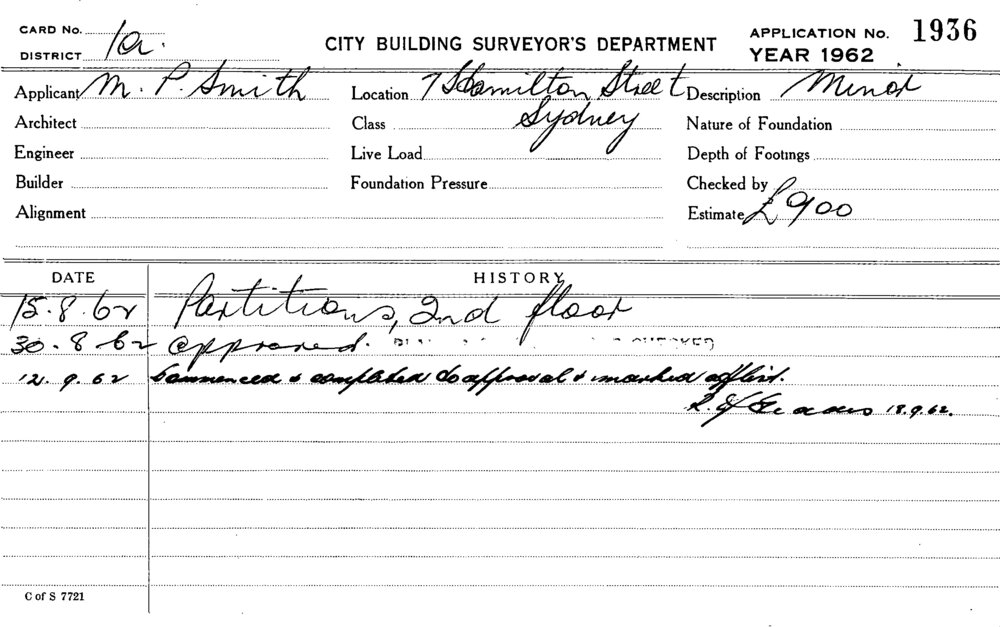 CARD No.
DISTRICT 1a.
CITY BUILDING SURVEYOR'S DEPARTMENT
APPLICATION No. 1936
YEAR 1962
Applicant M. P. Smith Location 7 Hamilton Street Description Minor
Architect Class Sydney Nature of Foundation
Engineer Live Load Depth of Footings
Builder Foundation Pressure Checked by
Alignment Estimate £900
DATE HISTORY
15.8.62 Partitions, 2nd floor
30.8.62 approved. CHECKED
12.9.62 Commenced & completed to approval & marked off list.
18.9.62.
C of S 7721